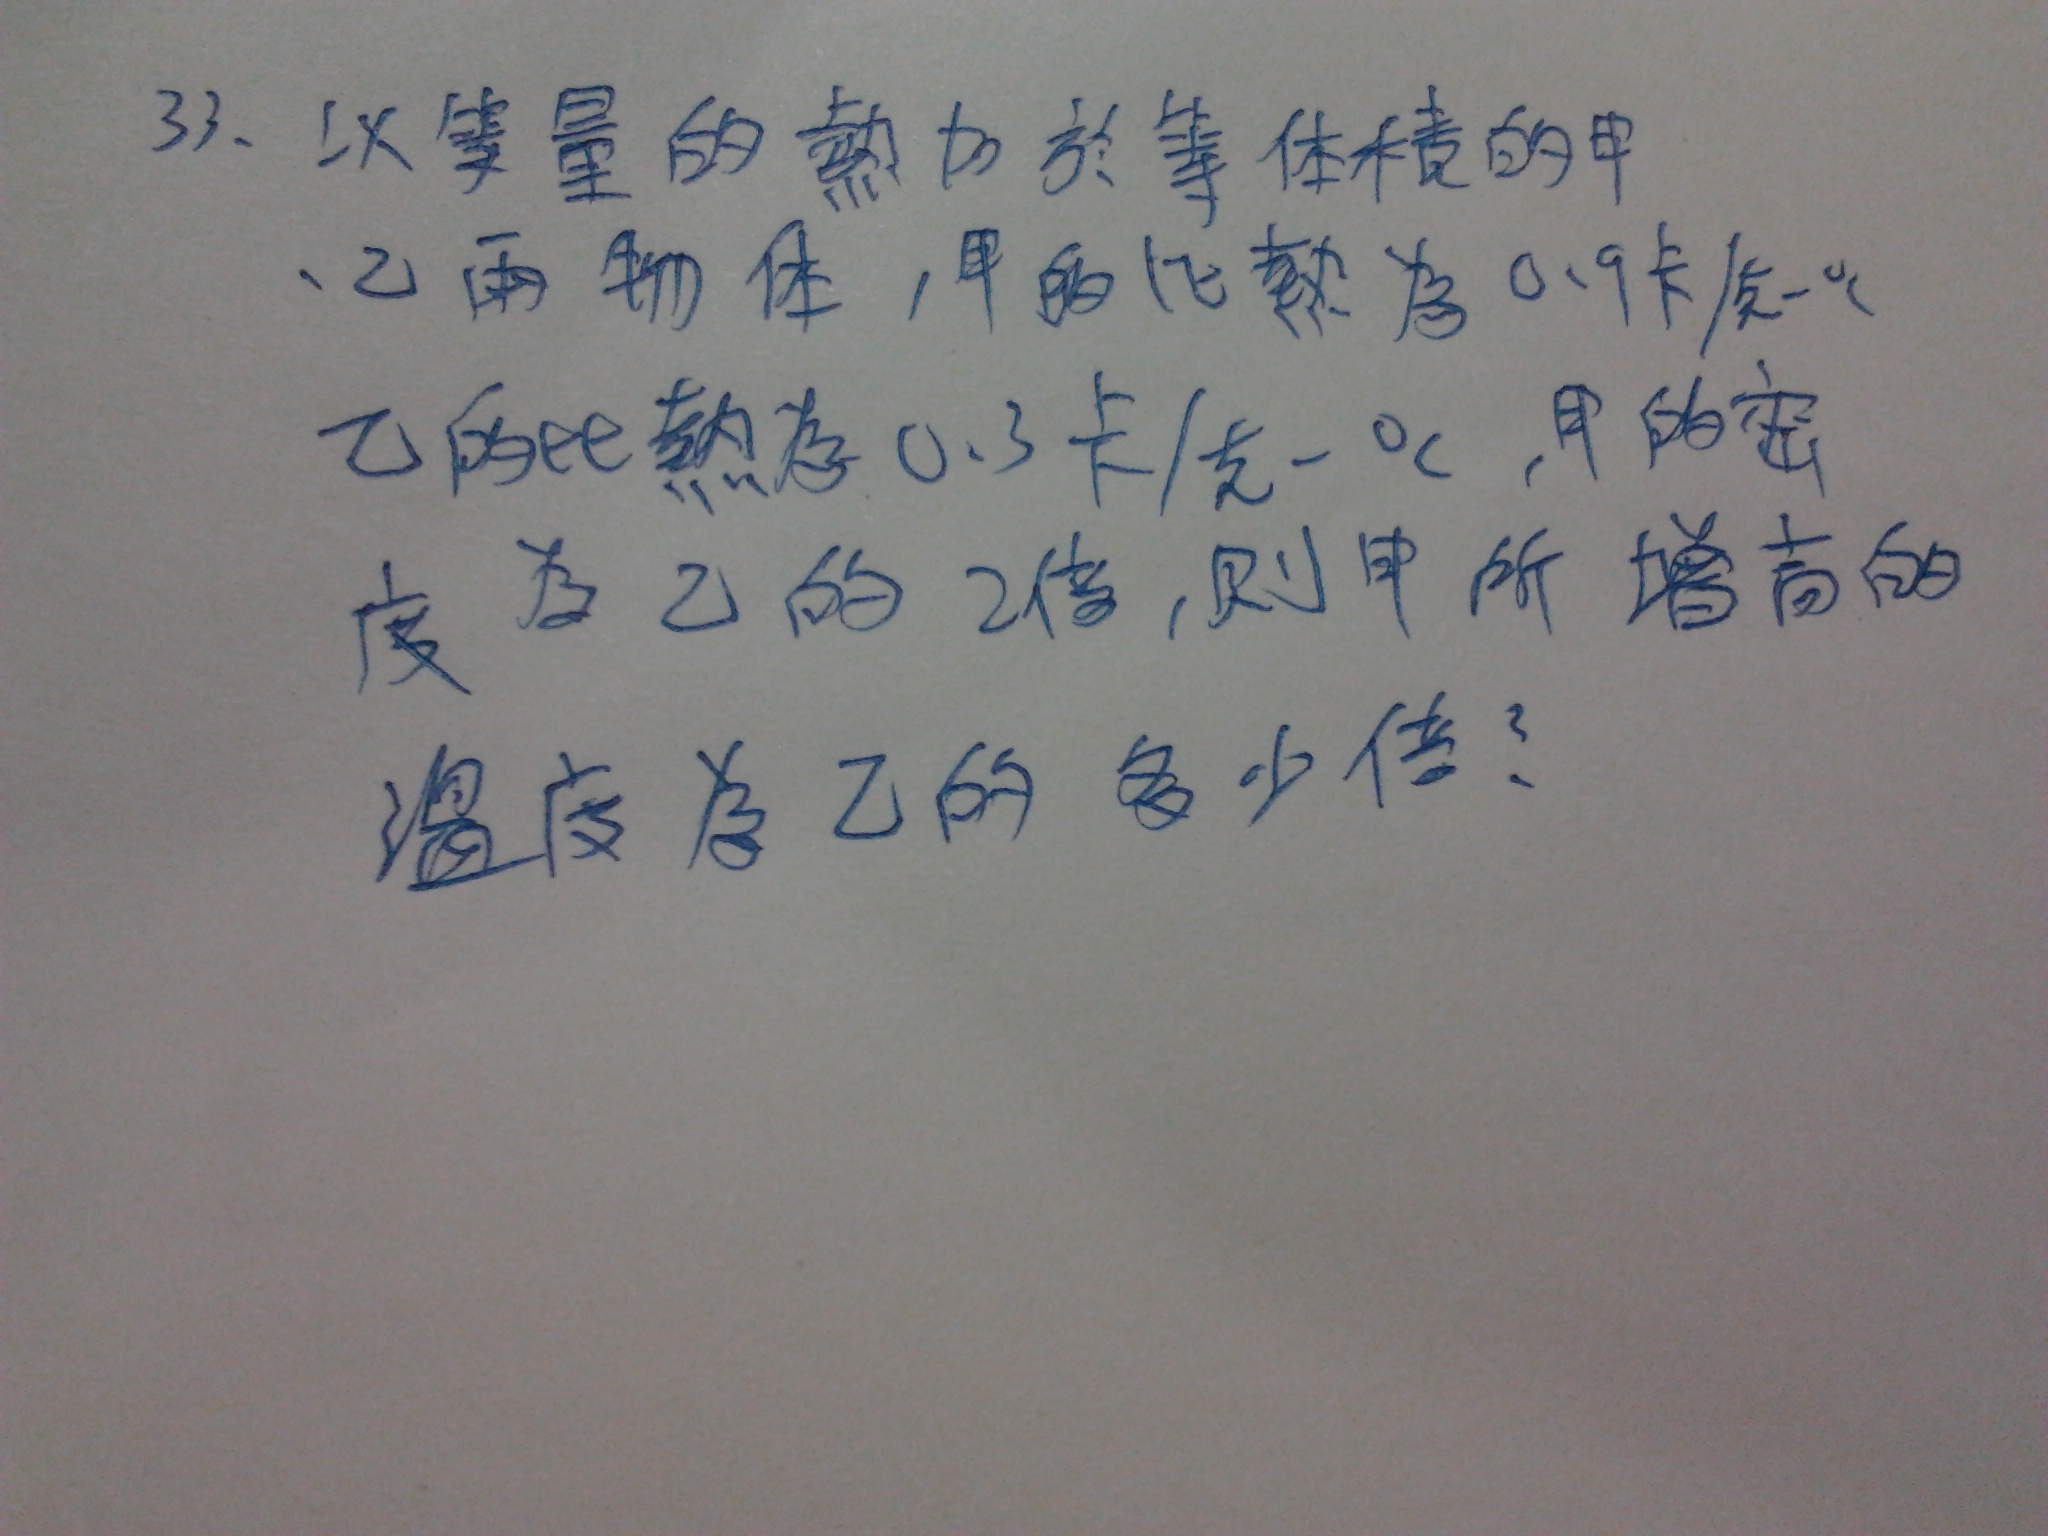 33、以等量的熱加於等体積的甲
、乙兩物体,甲的比熱為0.9卡/克-℃
乙的比熱為0.3卡/克-℃,甲的密
度為乙的2倍,則甲所增高的
溫度為乙的多少倍?